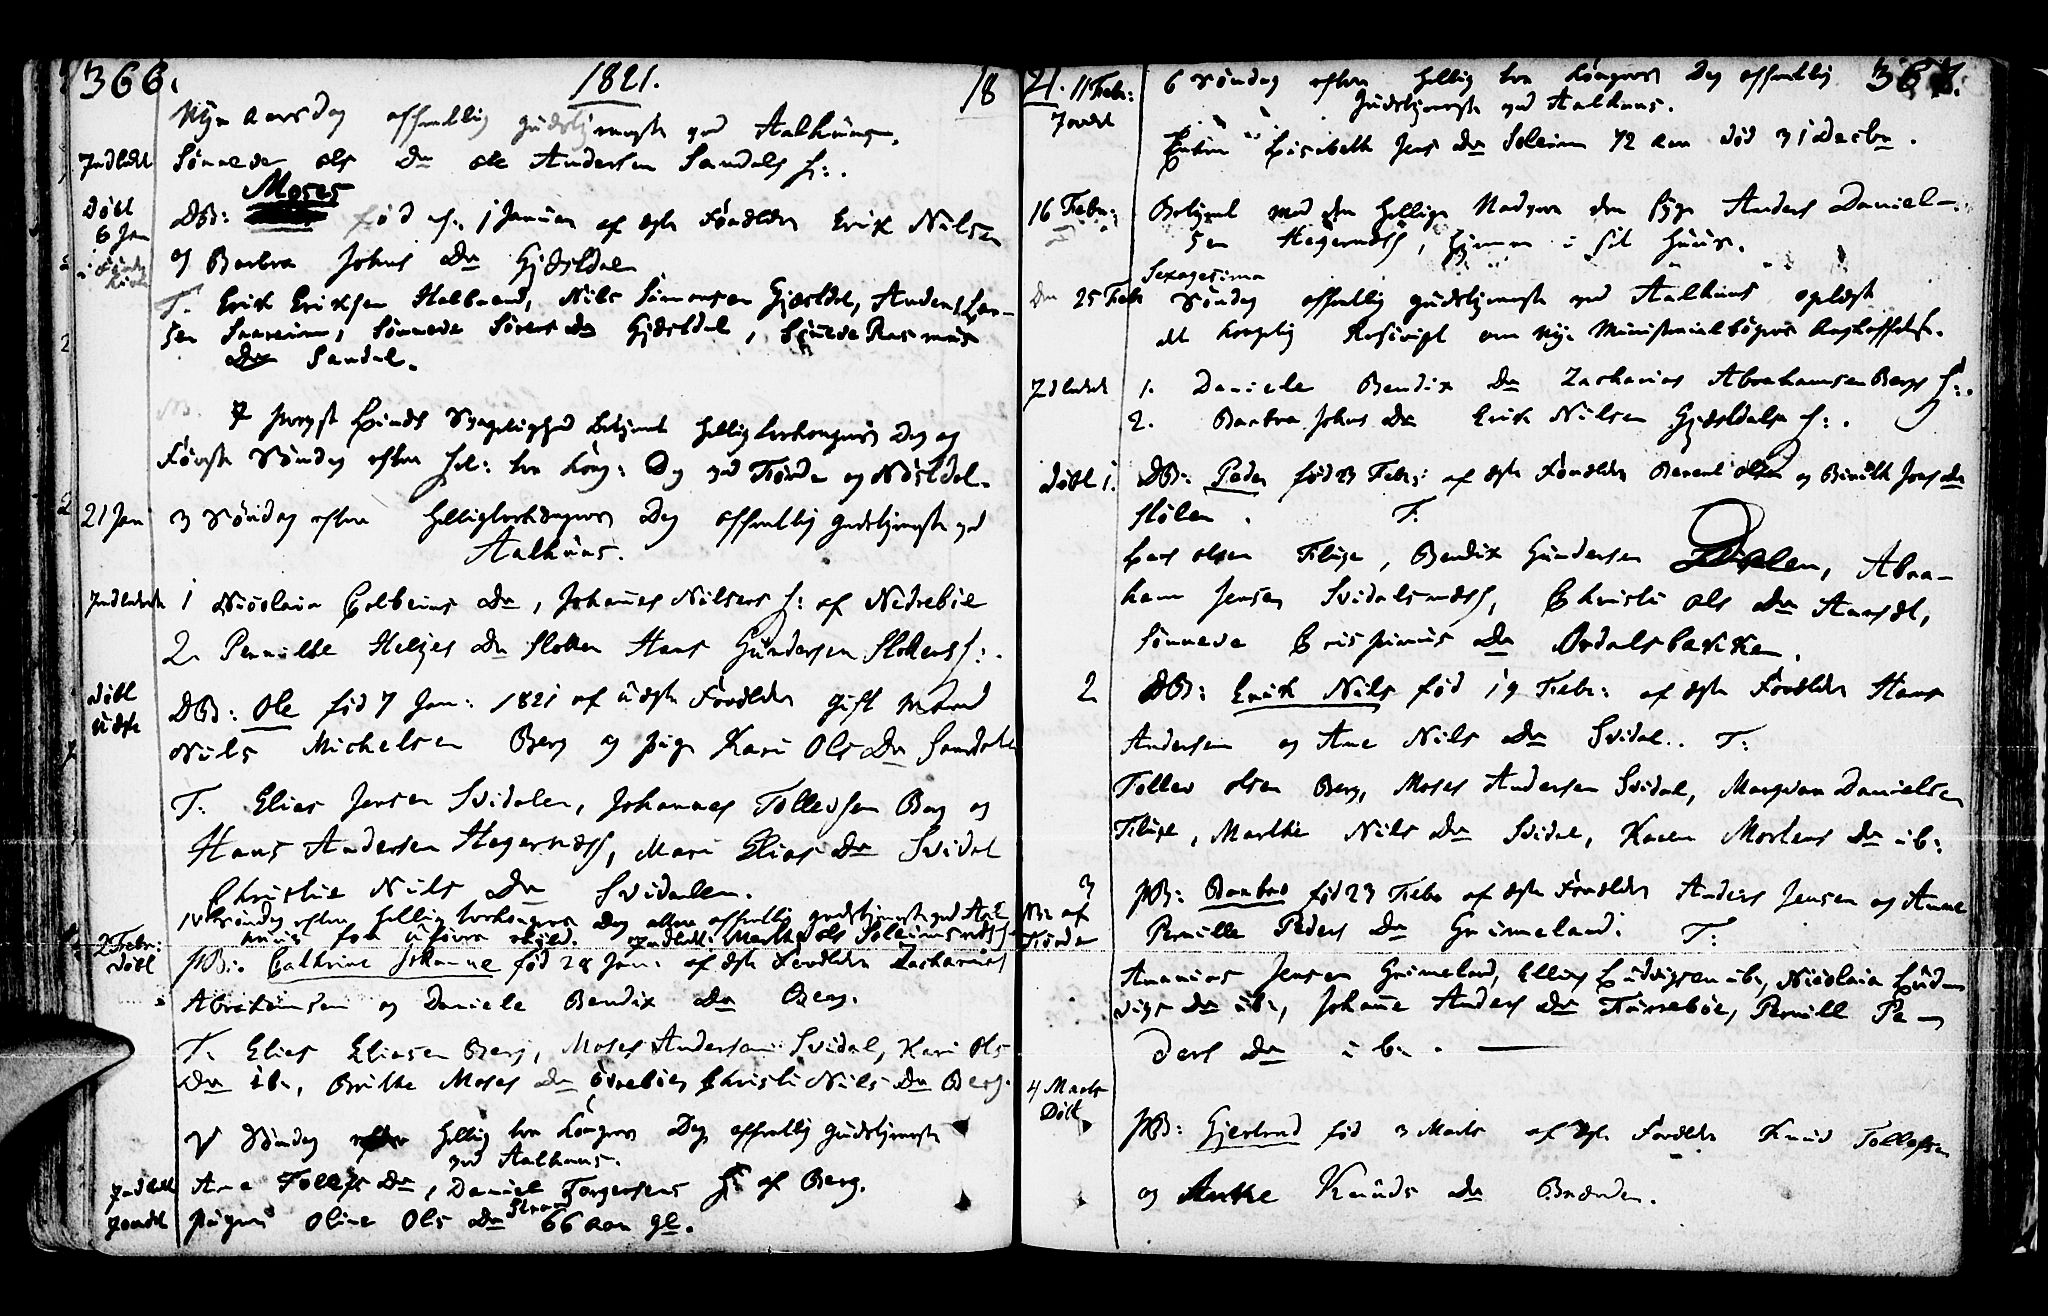 366.
1821.
18
Nÿe Aarsdag offentlig Gudstjeneste ved Aalhuus.
Indledt Sønneve Ols Dr Ole Andersen Sandals H:.
Moses
Døbt 6 Jan DB: fød d. 1 Januar af ægte Forældre Erik Nilsen
og Barbra Johns Dr Gjæsldal
T. Erik Eriksen Halbrend, Nils Simonsen Gjæsldal, Anders Lar-
sen Sunnevi Sørens Dr Gjæsldal, Rasmus
Dr Sandal.
Provst Linds Svagelighed betjent Helligtrekongers Dag og
Første Søndag efter Hel: tre Kong: Dag ved Førde og Nøsldal.
21 Jan 3 Søndag efter Helligtrekongers Dag offentlig Gudstjeneste ved
Aalhuus.
Indledede 1 Nicolaia Colbeins Dr, Johannes Nilsens H: af Nedrebøe
2. Pernille Helges Dr Flotten Hans Gundersen Flottens H:.
Døbt uægte DB: Ole fød 7 Jan: 1821 af uægte Forældre gift Mand
Nils Michelsen Berg og pige Kari Ols Dr Sandal
T: Elias Jensen Svidalen, Johannes Tollevsen Berg og
Hans Andersen Hegernæss, Mari Elias Dr Svidal
Christie Nils Dr Svidalen.
IV Søndag efter Hellig trekongers Dag offentlig Gudstjeneste ved Aal
huus for Indledt: Marthe Ols Solheimsnæss.
2 Febr: Døbt PB: Cathrine Johanne fød 28 Jan: af ægte Forældre Zacharias
Abrahamsen og Daniele Bendix Dr Berg.
T. Elias Eliasen Berg, Moses Andersen Svidal, Kari Ols
Dr ib., Brithe Moses Dr Øvrebøe, Christi Nils Dr Berg.
V Søndag efter Hellig tre Kongers Dag offentlig Gudstjeneste
ved Aalhuus.
Indledt Ane Tollefs Dr, Daniel Torgersens H: af Berg.
Jordet pigen Oline Ols Dr 66 Aar gl.
367.
21. 11 Febr: 6 Søndag efter Hellig tre Kongers Dag offentlig
Gudstjeneste ved Aalhuus.
Jordet Lisabeth Jens Dr Soleim 72 Aar død 31 Decbr.
16 Febr: Betjent med den hellige Nadvere den syge Anders Daniel-
sen Hegernæss, hjemme i sit Huus.
Sexagesima
Den 25 Febr Søndag offentlig Gudstjeneste ved Aalhuus oplæst
det kongelig Rescript om nye Ministerialbøgers Anskaffelse.
Indledede 1. Daniele Bendix Dr Zacharias Abrahamsen Bergs H:.
2. Barbra Johns Dr Erik Nilsen Gjæsldals H:.
Døbt 1. DB: Peder fød 23 Febr: af ægte Forældre Berent Olsen og Birith Jons Dr
Stølen. T:
Lars Olsen Flüge, Bendix Gundersen Dvalen, Abra-
ham Jensen Svidalsnæss, Christi Ols Dr Aarsæt,
Sønneve Crispinus Dr Ordalsbakken.
2 DB: Erik Nils fød 19 Febr: af ægte Forældre Hans
Andersen og Ane Nils Dr Svidal. T:
Tollev Olsen Berg, Moses Andersen Svidal, Danielsen
Flüge, Marthe Nils Dr Svidal, Karen Mortens Dr ib:
3 PB: Barbro fød 23 Febr af ægte Forældre Anders Jensen og Anne
NB: af Førde Pernille Peders Dr Grimeland: T:
Ananias Jensen Grimeland, Elling Ludvigsen ib:, Nicolaia Lud-
vigs Dr ib:, Johanne Anders Dr Farsebøe, Pernill Pe-
ders Dr ib.
4 Marts Døbt PB: Gjertrud fød 3 Marts af ægte Forældre Knud Tollefsen
og Anthe Knuds Dr Bruland.